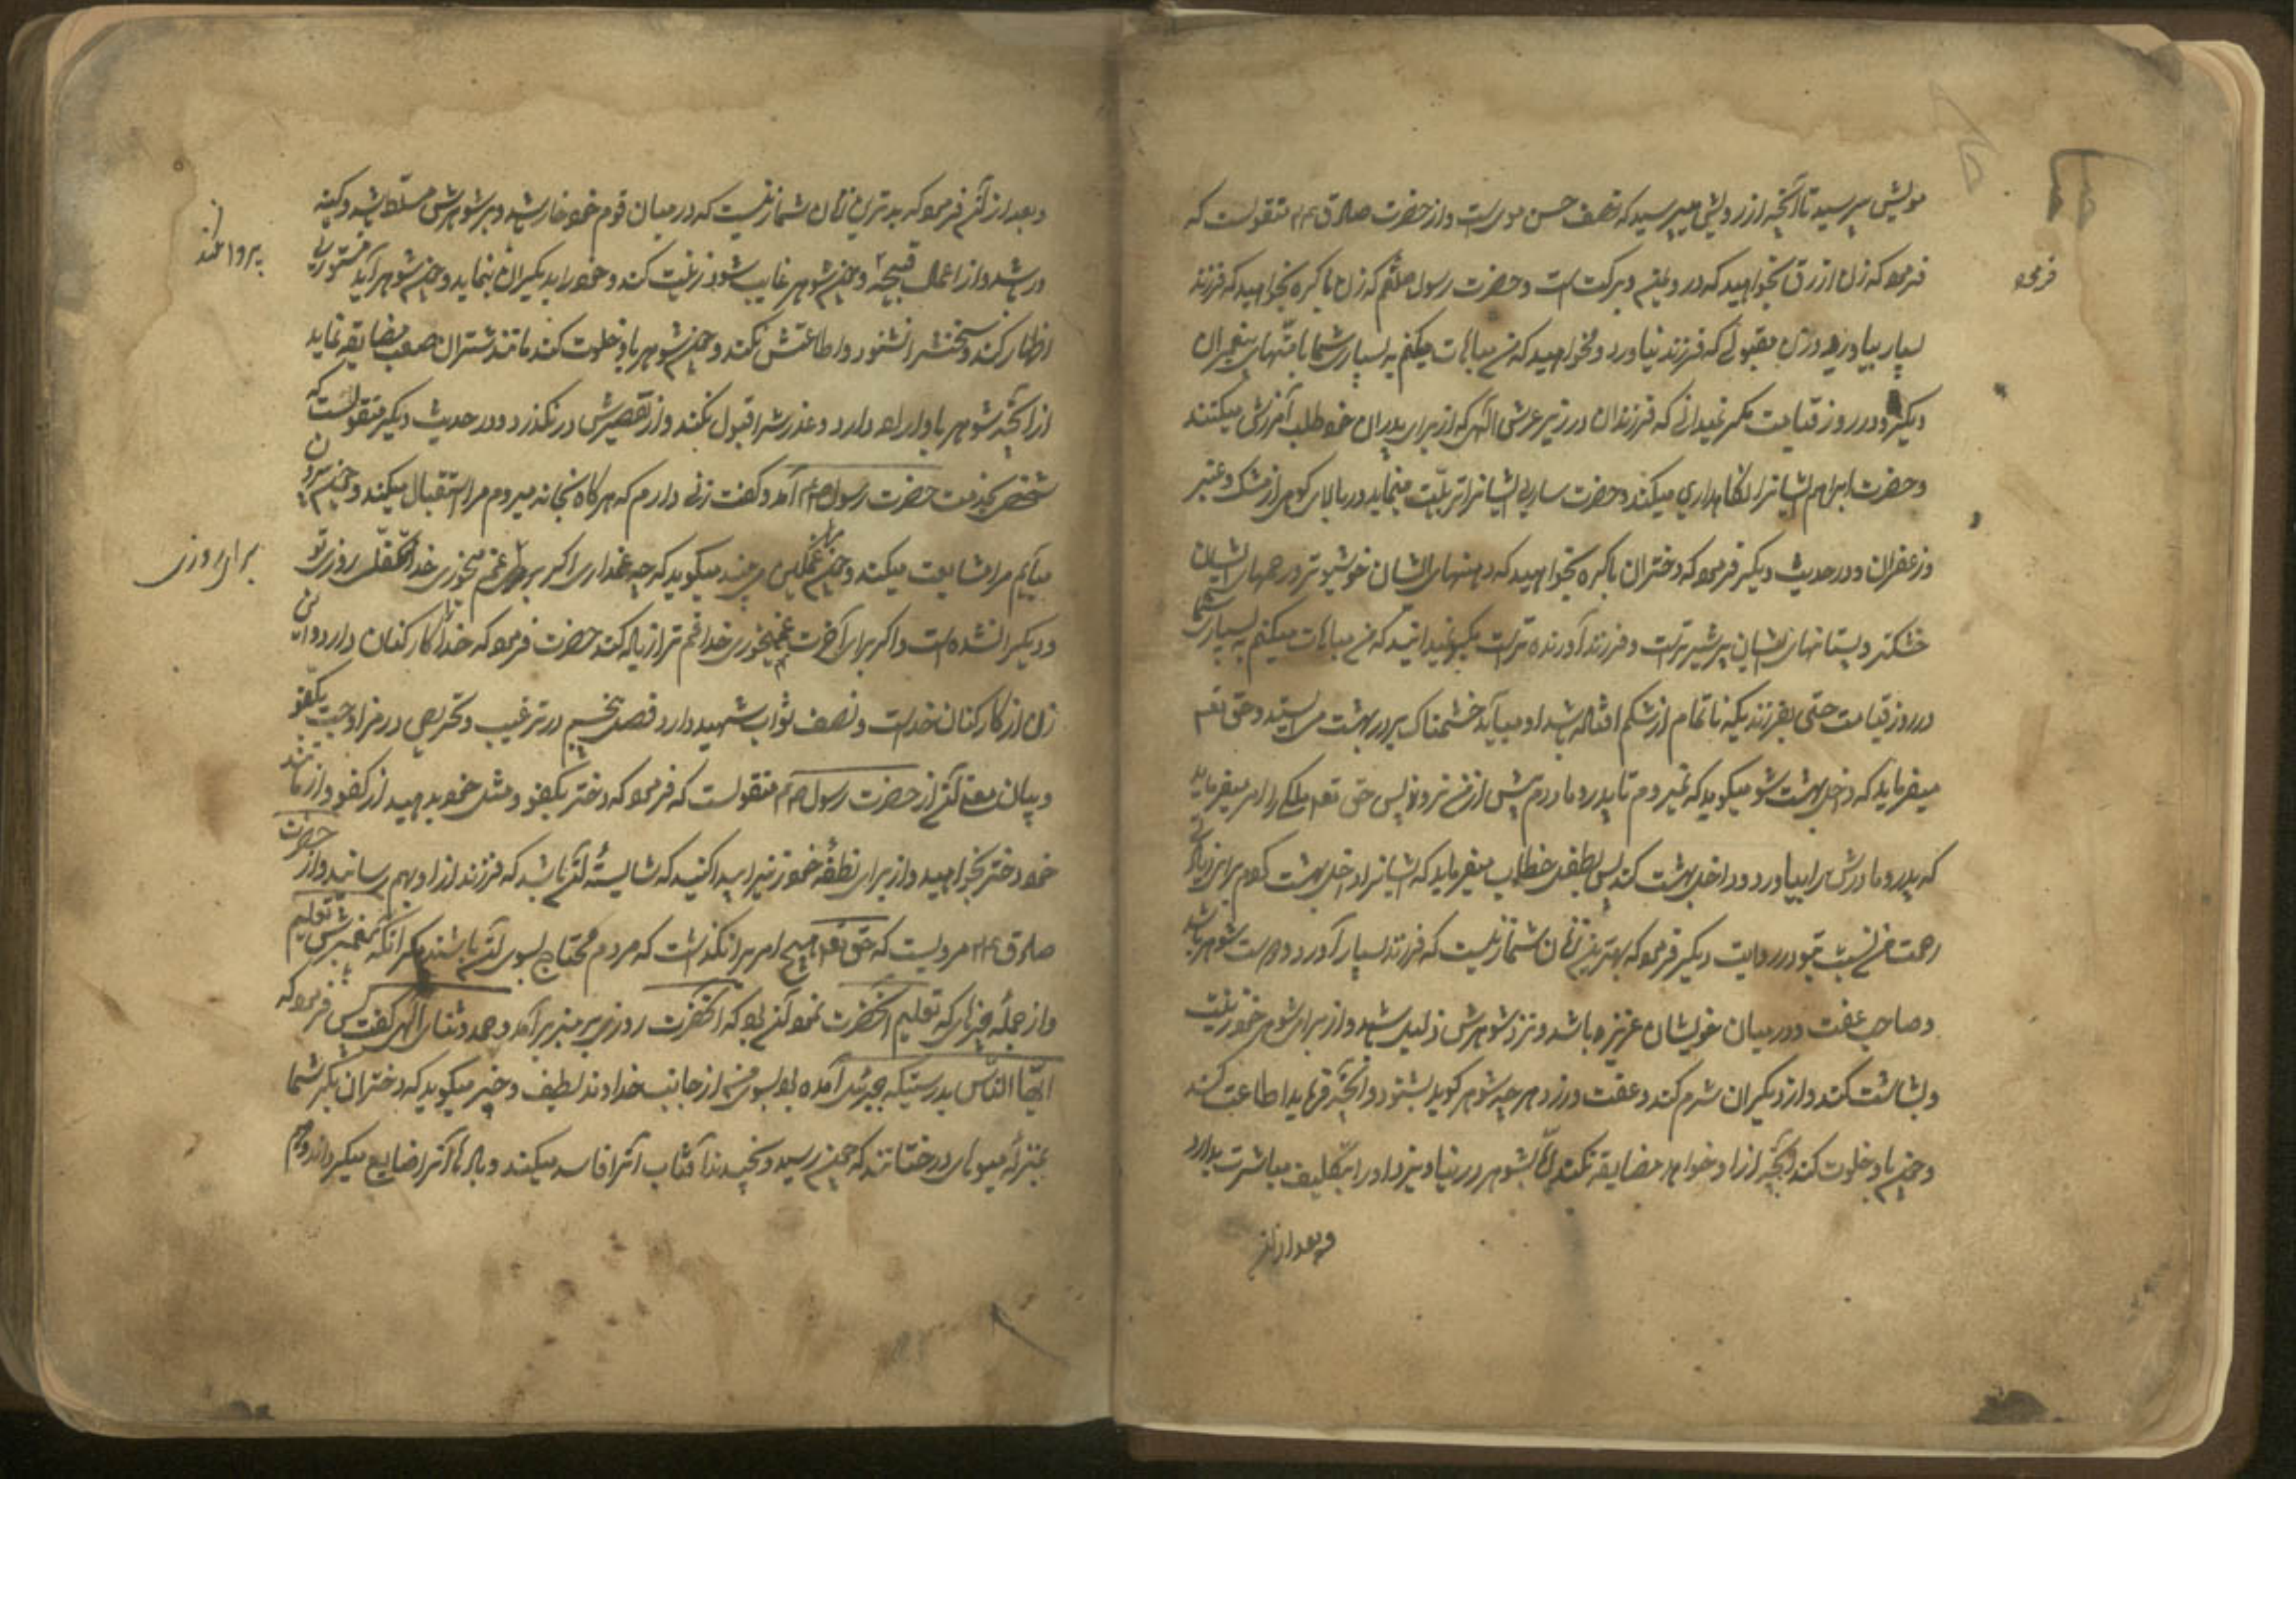 مویش بپرسید تا آنچه از رویش میپرسید که نصف حسن مویست و از حضرت صادق ع م منقولست که
فرمود که زن ازرق بخواهید که در و یمن و برکت است و حضرت رسول صلعم که زن باکره بخواهید که فرزند
فرمود
بسیار بیاورد و زن مقبولی که فرزند نیاورد و مخواهید که من مباهات میکنم به بسیاری شما با امتهای پیغمبران
دیگر و در روز قیامت مگر نمیدانی که فرزندان در زیر عرش الهی که از برای پدران خود طلب آمرزش میکنند
و حضرت ابراهیم ایشانرا نگاهداری میکند و حضرت ساره ایشانرا تربیت مینماید در بالای کوهی از مشک و عنبر
و زعفران و در حدیث دیگر فرمود که دختران باکره بخواهید که دهنهای ایشان خوشبوتر و رحمهای ایشان
خشکتر و پستانهای ایشان پرشیرتر است و فرزند آورنده تر است مگر نمیدانید که من مباهات میکنم به بسیاری شما
در روز قیامت حتی بفرزندیکه ناتمام از شکم افتاده باشد او میآید خشمناک بر در بهشت می ایستد و حق تعم
میفرماید که داخل بهشت شو میگوید که نمیروم تا پدر و مادرم پیش از من نروند پس حق تعم ملکی را امر میفرماید
که پدر و مادرش را بیاورد و داخل بهشت کند پس بطفل خطاب میفرماید که ایشانرا داخل بهشت کردم برای زیادتی
رحمت من نسبت بتو و در روایت دیگر فرمود که بهترین زنان شما زنیست که فرزند بسیار آورد و دوست شوهر باشد
و صاحب عفت و در میان خویشان عزیزه باشد و نزد شوهرش ذلیل باشد و از برای شوهر خود زینت
و بشاشت کند و از دیگران شرم کند و عفت ورزد هر چه شوهر گوید بشنود و آنچه فرماید اطاعت کند
و چون باو خلوت کند آنچه از او خواهد مضایقه نکند اما بشوهر در نیاویزد و او را بتکلیف مباشرت بدارد
و بعد از آن
و بعد از آن فرمود که بدترین زنان شما زنیست که در میان قوم خود خوار باشد و بر شوهرش مسلط باشد و کینه
ور باشد و از اعمال قبیحه و چون شوهر غایب شود زینت کند و خود را بدیگران بنماید و چون شوهر آید مستوری
پروا نکند
اظهار کند و سخنشرا نشنود و اطاعتش نکند و چون شوهر باو خلوت کند مانند شتران صعب مضایقه نماید
از آنچه شوهر باو اراده دارد و عذرشرا قبول نکند و از تقصیرش درنگذرد و در حدیث دیگر منقولست که
شخصی بخدمت حضرت رسول ص م آمد و گفت زنی دارم که هرگاه بخانه میروم مرا استقبال میکند و چون بیرون
میآیم مرا مشایعت میکند و چون غمگین می بیند میگوید که چه غم داری اگر برای غم میخوری خدا متکفل روزی تو
برای روزی
و دیگران شده است و اگر برای آخرت غم میخوری خدا غم ترا زیاده کند حضرت فرمود که خدا را کارکنان دارد و این
زن از کارکنان خداست و نصف ثواب شهید دارد فصل پنجم در ترغیب و تحریص در مزاوجت بکفو
و بیان معنی آن از حضرت رسول ص م منقولست که فرمود که دختر بکفو و مثل خود بدهید از کفو و از مانند
خود دختر بخواهید و از برای نطفه خود زنیرا پیدا کنید که شایسته آن باشد که فرزند از او بهم رسانید و از حضرت
صادق ع م مرویست که حق تعم هیچ امر را نگذاشت که مردم محتاج بسوی آن باشند مگر آنکه به پیغمبرش تعلیم
و از جمله چیزهائی که تعلیم آنحضرت نمود آن بود که آنحضرت روزی بر منبر برآمد و حمد و ثنای الهی گفت پس فرمود که
ایها الناس بدرستیکه جبرئیل آمده بود بسوی من از جانب خداوند لطیف و خبیر میگوید که دختران بکر شما
بمنزله میوهای درختانند که چون رسید و نچیدند آفتاب آنرا فاسد میکند و بادها آنرا ضایع میگرداند و هم